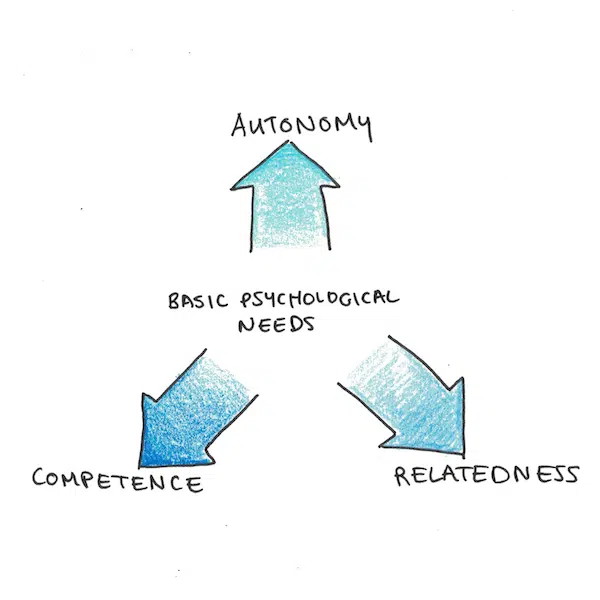 AUTONOMY
BASIC PSYCHOLOGICAL
NEEDS
COMPETENCE
RELATEDNESS